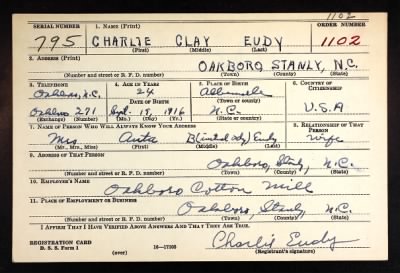 1102
SERIAL NUMBER 1. NAME (Print) ORDER NUMBER
795 CHARLIE CLAY EUDY 1102
(First) (Middle) (Last)
2. ADDRESS (Print)
OAKBORO, STANLY, N.C.
(Number and street or R. F. D. number) (Town) (County) (State)
3. TELEPHONE 4. AGE IN YEARS 5. PLACE OF BIRTH 6. COUNTRY OF CITIZENSHIP
Oakboro, N.C. 24 Albemarle
DATE OF BIRTH (Town or county)
Oakboro 271 Sept. 18, 1916 N.C. U.S.A
(Exchange) (Number) (Mo.) (Day) (Yr.) (State or country)
7. NAME OF PERSON WHO WILL ALWAYS KNOW YOUR ADDRESS 8. RELATIONSHIP OF THAT PERSON
Mrs Anita B(initial only) Eudy Wife
(Mr., Mrs., Miss) (First) (Middle) (Last)
9. ADDRESS OF THAT PERSON
Oakboro, Stanly, N.C.
(Number and street or R. F. D. number) (Town) (County) (State)
10. EMPLOYER'S NAME
Oakboro Cotton Mill
11. PLACE OF EMPLOYMENT OR BUSINESS
Oakboro, Stanly, N.C.
(Number and street or R. F. D. number) (Town) (County) (State)
I AFFIRM THAT I HAVE VERIFIED ABOVE ANSWERS AND THAT THEY ARE TRUE.
REGISTRATION CARD
D. S. S. Form 1 16—17105 Charlie Eudy
(over) (Registrant's signature)